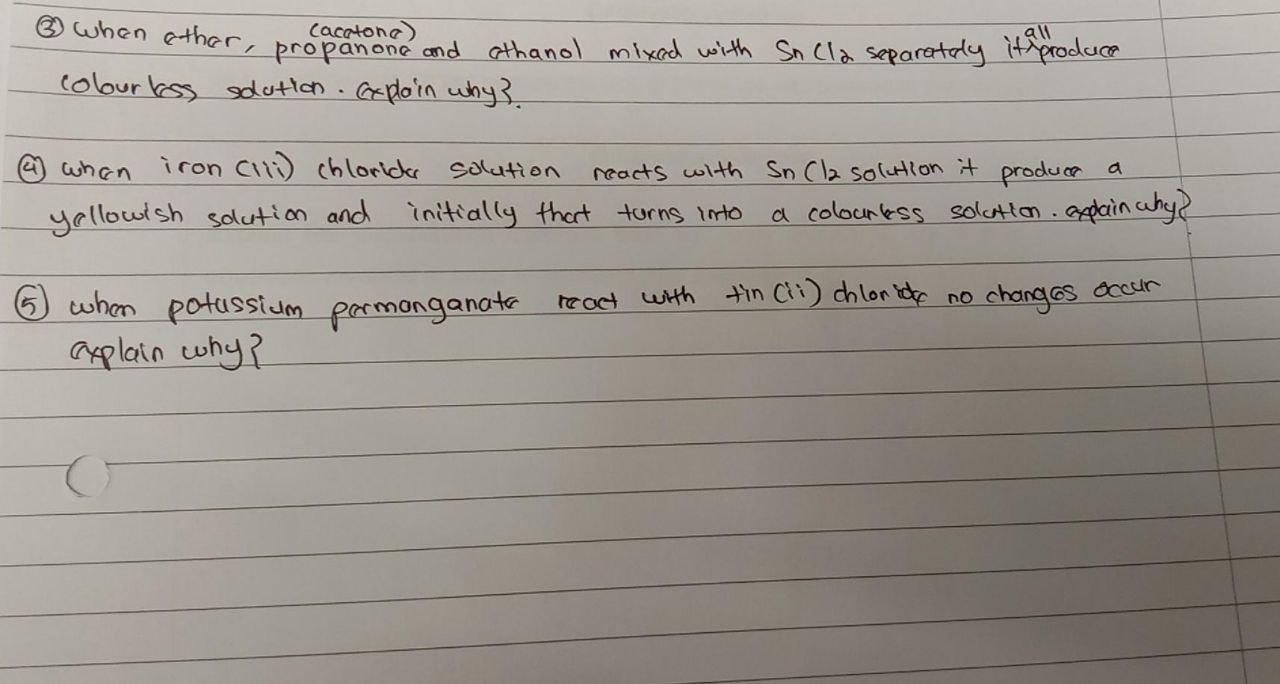 (acetone)
③ When ether, propanone and ethanol mixed with SnCl2 separately it all produce
colourless solution. explain why?
④ when iron (iii) chloride solution reacts with SnCl2 solution it produce a
yellowish solution and initially that turns into a colourless solution. explain why?
⑤ when potassium permanganate react with tin (ii) chloride no changes occur
explain why?